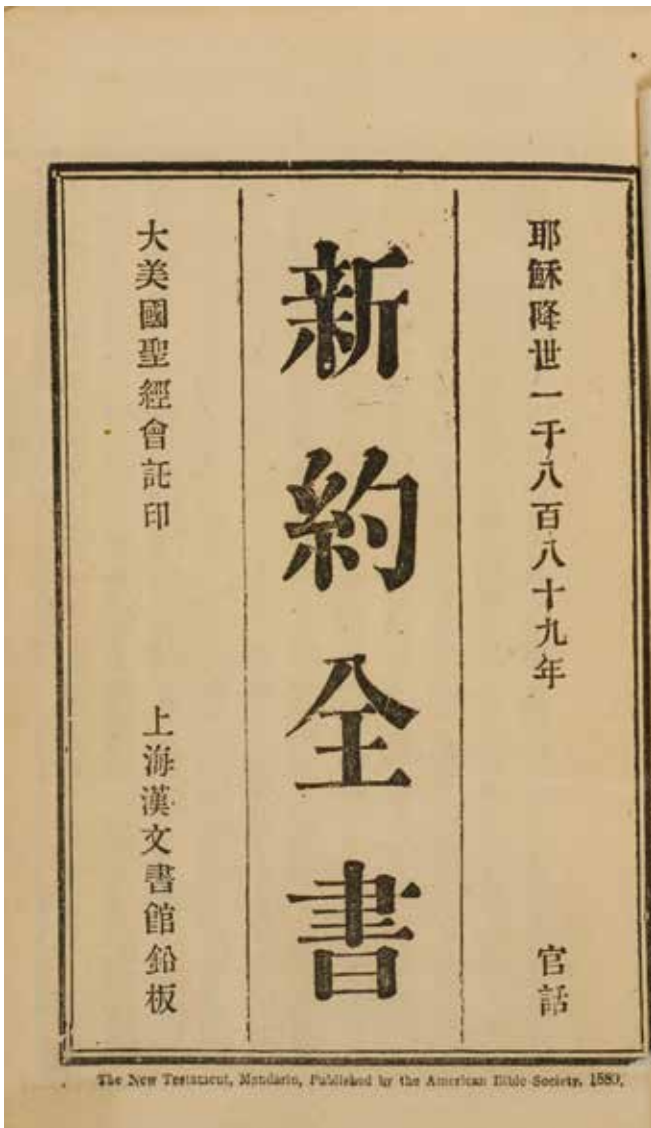 耶穌降世一千八百八十九年 官話
新約全書
大美國聖經會託印 上海漢文書館鉛板
The New Testament, Mandarin, Published by the American Bible Society. 1889.